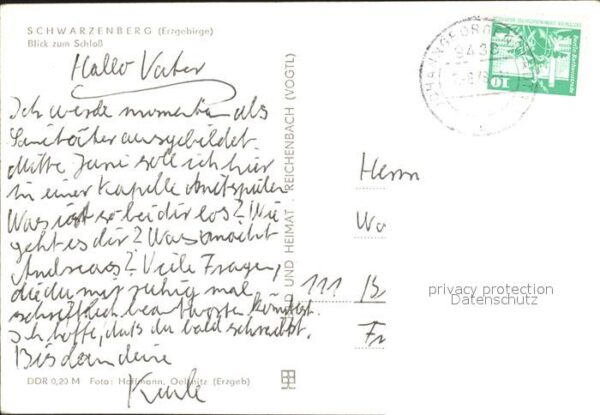 SCHWARZENBERG (Erzgebirge)
Blick zum Schloß
Hallo Vater
Ich werde momentan als
Sanitäter ausgebildet.
Mitte Juni soll ich hier
in einer Kapelle mitspielen
Was ist so bei dir los? Wie
geht es dir? Was macht
Andreas? Viele Fragen,
die du mir ruhig mal
schriftlich beantworten könntest.
Ich hoffe, daß du bald schreibst.
Bis dann deine
DDR 0,20 M Foto: Hoffmann, Oelsnitz (Erzgeb)
UND HEIMAT · REICHENBACH (VOGTL)
9438
10
Herrn
Wo
111 B
Fr
privacy protection
Datenschutz